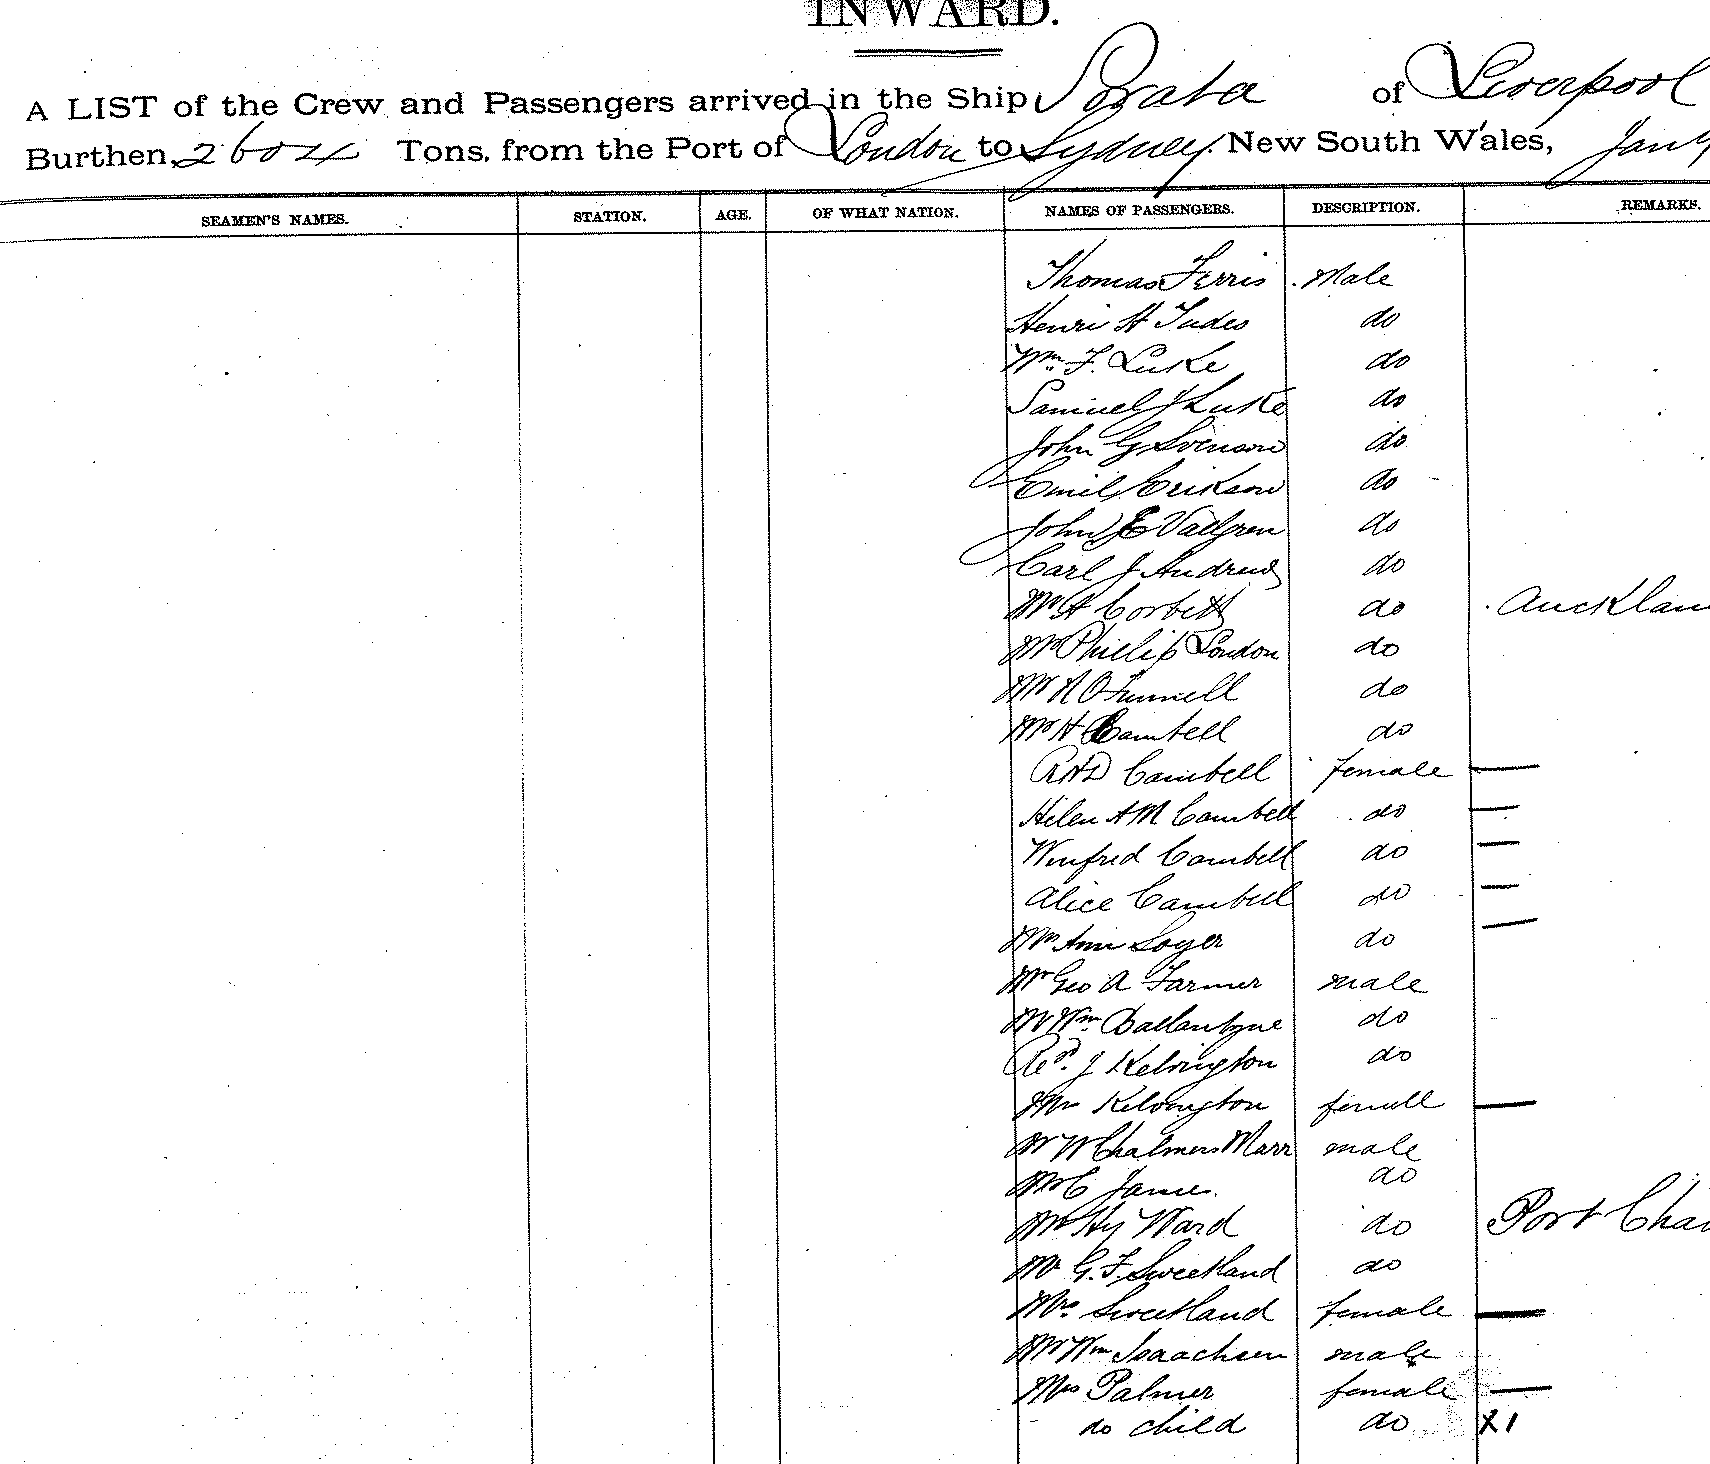 INWARD.
A LIST of the Crew and Passengers arrived in the Ship Sorata of Liverpool
Burthen, 2604 Tons, from the Port of London to Sydney. New South Wales, Jany
SEAMEN'S NAMES. STATION. AGE. OF WHAT NATION. NAMES OF PASSENGERS. DESCRIPTION. REMARKS.
Thomas Ferris Male
Henri H Tudes do
Wm. F. Luke do
Samuel J Luke do
John G Svenson do
Emil Erikson do
John E Vallgren do
Carl J Andrew do
Mr A Corbett do Aucklan
Mr Phillip London do
Mr A O Funnell do
Mr H Cambell do
RAD Cambell female —
Helen AM Cambell do —
Winfred Cambell do —
Alice Cambell do —
Mrs Ann Soyer do —
Mr Geo A Farmer male
Mr Wm. Ballantyne do
Revd. J Kelvington do
Mrs Kelvington female —
Mr W Chalmers Marr male
Mr C James. do
Mr Hy Ward do Port Chal
Mr G. F. Sweetland do
Mrs Sweetland female —
Mr Wm Isaachsen male
Mrs Palmer female —
do child do X1